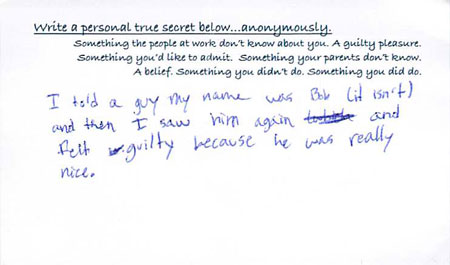 Write a personal true secret below...anonymously.
Something the people at work don't know about you. A guilty pleasure.
Something you'd like to admit. Something your parents don't know.
A belief. Something you didn't do. Something you did do.
I told a guy my name was Bob (it isn't)
and then I saw him again and
felt guilty because he was really
nice.